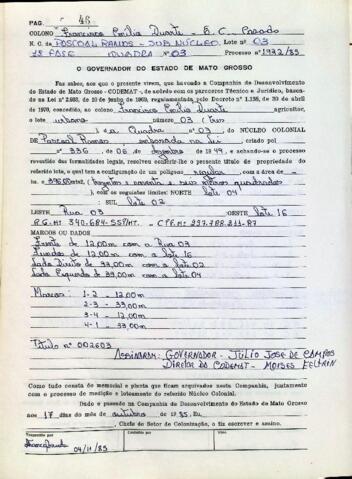 PAG. 46
COLONO Francisco Emilio Duarte - B.C. Casado
N. C. de PASCOAL RAMOS - SUB NÚCLEO Lote nº 03
1ª FASE QUADRA nº 03 Processo nº 1922/85
O GOVERNADOR DO ESTADO DE MATO GROSSO
Faz saber, aos que o presente virem, que havendo a Companhia de Desenvolvimento
do Estado de Mato Grosso - CODEMAT -, de acordo com os pareceres Técnico e Jurídico, baseada
na Lei nº 2.988, de 20 de junho de 1969, regulamentada pelo Decreto nº 1.138, de 30 de abril
de 1970, concedido ao colono Francisco Emilio Duarte agricultor,
o lote urbano número 03 (Tres
) da Quadra nº 03, do NÚCLEO COLONIAL
de Pascoal Ramos, criado por
nº 336, de 06 de dezembro de 1949, e achando-se o processo
revestido das formalidades legais, resolveu conferir-lhe o presente título de propriedade do
referido lote, o qual tem a configuração de um polígono regular, com a área de
has. 396,00m² (Trezentos e noventa e seis metros quadrados
), com os seguintes limites: NORTE lote 04
SUL lote 02
LESTE Rua 03 OESTE lote 16
R.G. nº 340.684-SSP/MT. - CPF. nº 237.788.211-87
MARCOS OU DADOS
Frente de 12,00m com a Rua 03
Fundos de 12,00m com o lote 16
Lado Direito de 33,00m com o lote 02
Lado Esquerdo de 33,00m com o lote 04
Marcos: 1-2 - 12,00m
2-3 - 33,00m
3-4 - 12,00m
4-1 - 33,00m
Titulo nº 002603
Assinaram: GOVERNADOR - JULIO JOSÉ DE CAMPOS
Diretor da CODEMAT - MOISES FELTRIN
Como tudo consta do memorial e planta que ficam arquivados nesta Companhia, juntamente
com o processo de medição e loteamento do referido Núcleo Colonial.
Dado e passado na Companhia de Desenvolvimento do Estado de Mato Grosso
aos 17 dias do mês de outubro de 1985. Eu,
, Chefe do Setor de Colonização, o fiz escrever e assino.
Transcrito por
Conferido por
Visto
04/11/85